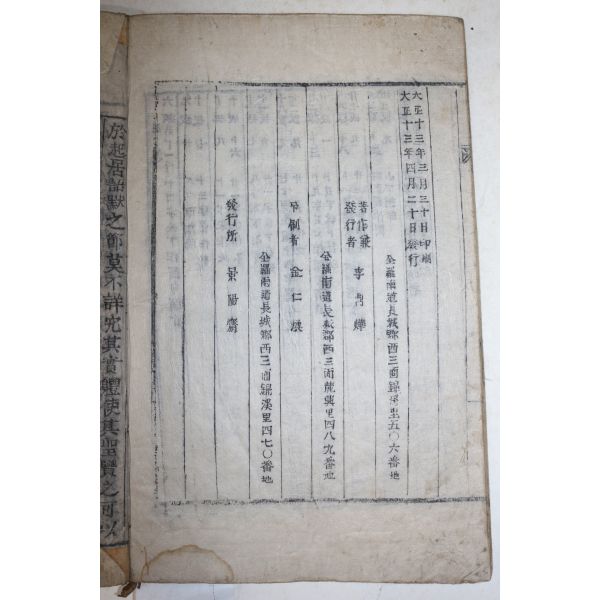 大正十三年三月三十日印刷
大正十三年四月二十日發行
全羅南道長城郡西三面鏡溪里五〇六番地
著作兼
發行者
李
全羅南道長城郡西三面龍興里四八九番地
印刷者 金仁
全羅南道長城郡西三面鏡溪里四七〇番地
發行所 景陽齋
於起居語默之節莫不詳究其實體使其聖賢之可以